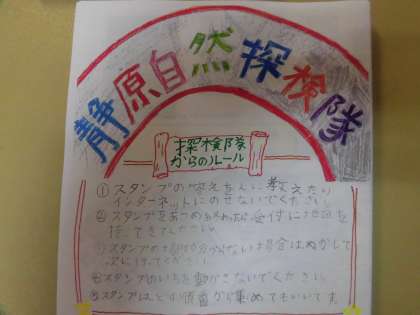 静原自然探検隊
探検隊
からのルール
①スタンプの答えを人に教えたり
インターネットにのせないでください。
②スタンプをあつめおわったら受付に地図を
持ってきてください。
③スタンプの場所が分からない場合はぬかして
次に行ってください。
④スタンプのいちを動かさないでください。
⑤スタンプはどの順番から集めてもいいです